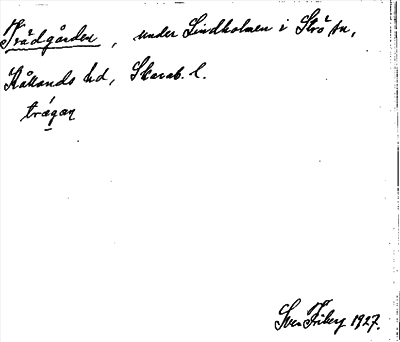 Trädgården, under Lindholmen i Strö sn,
Kållands hd, Skarab. l.
trágan
Sven Friberg 1927.